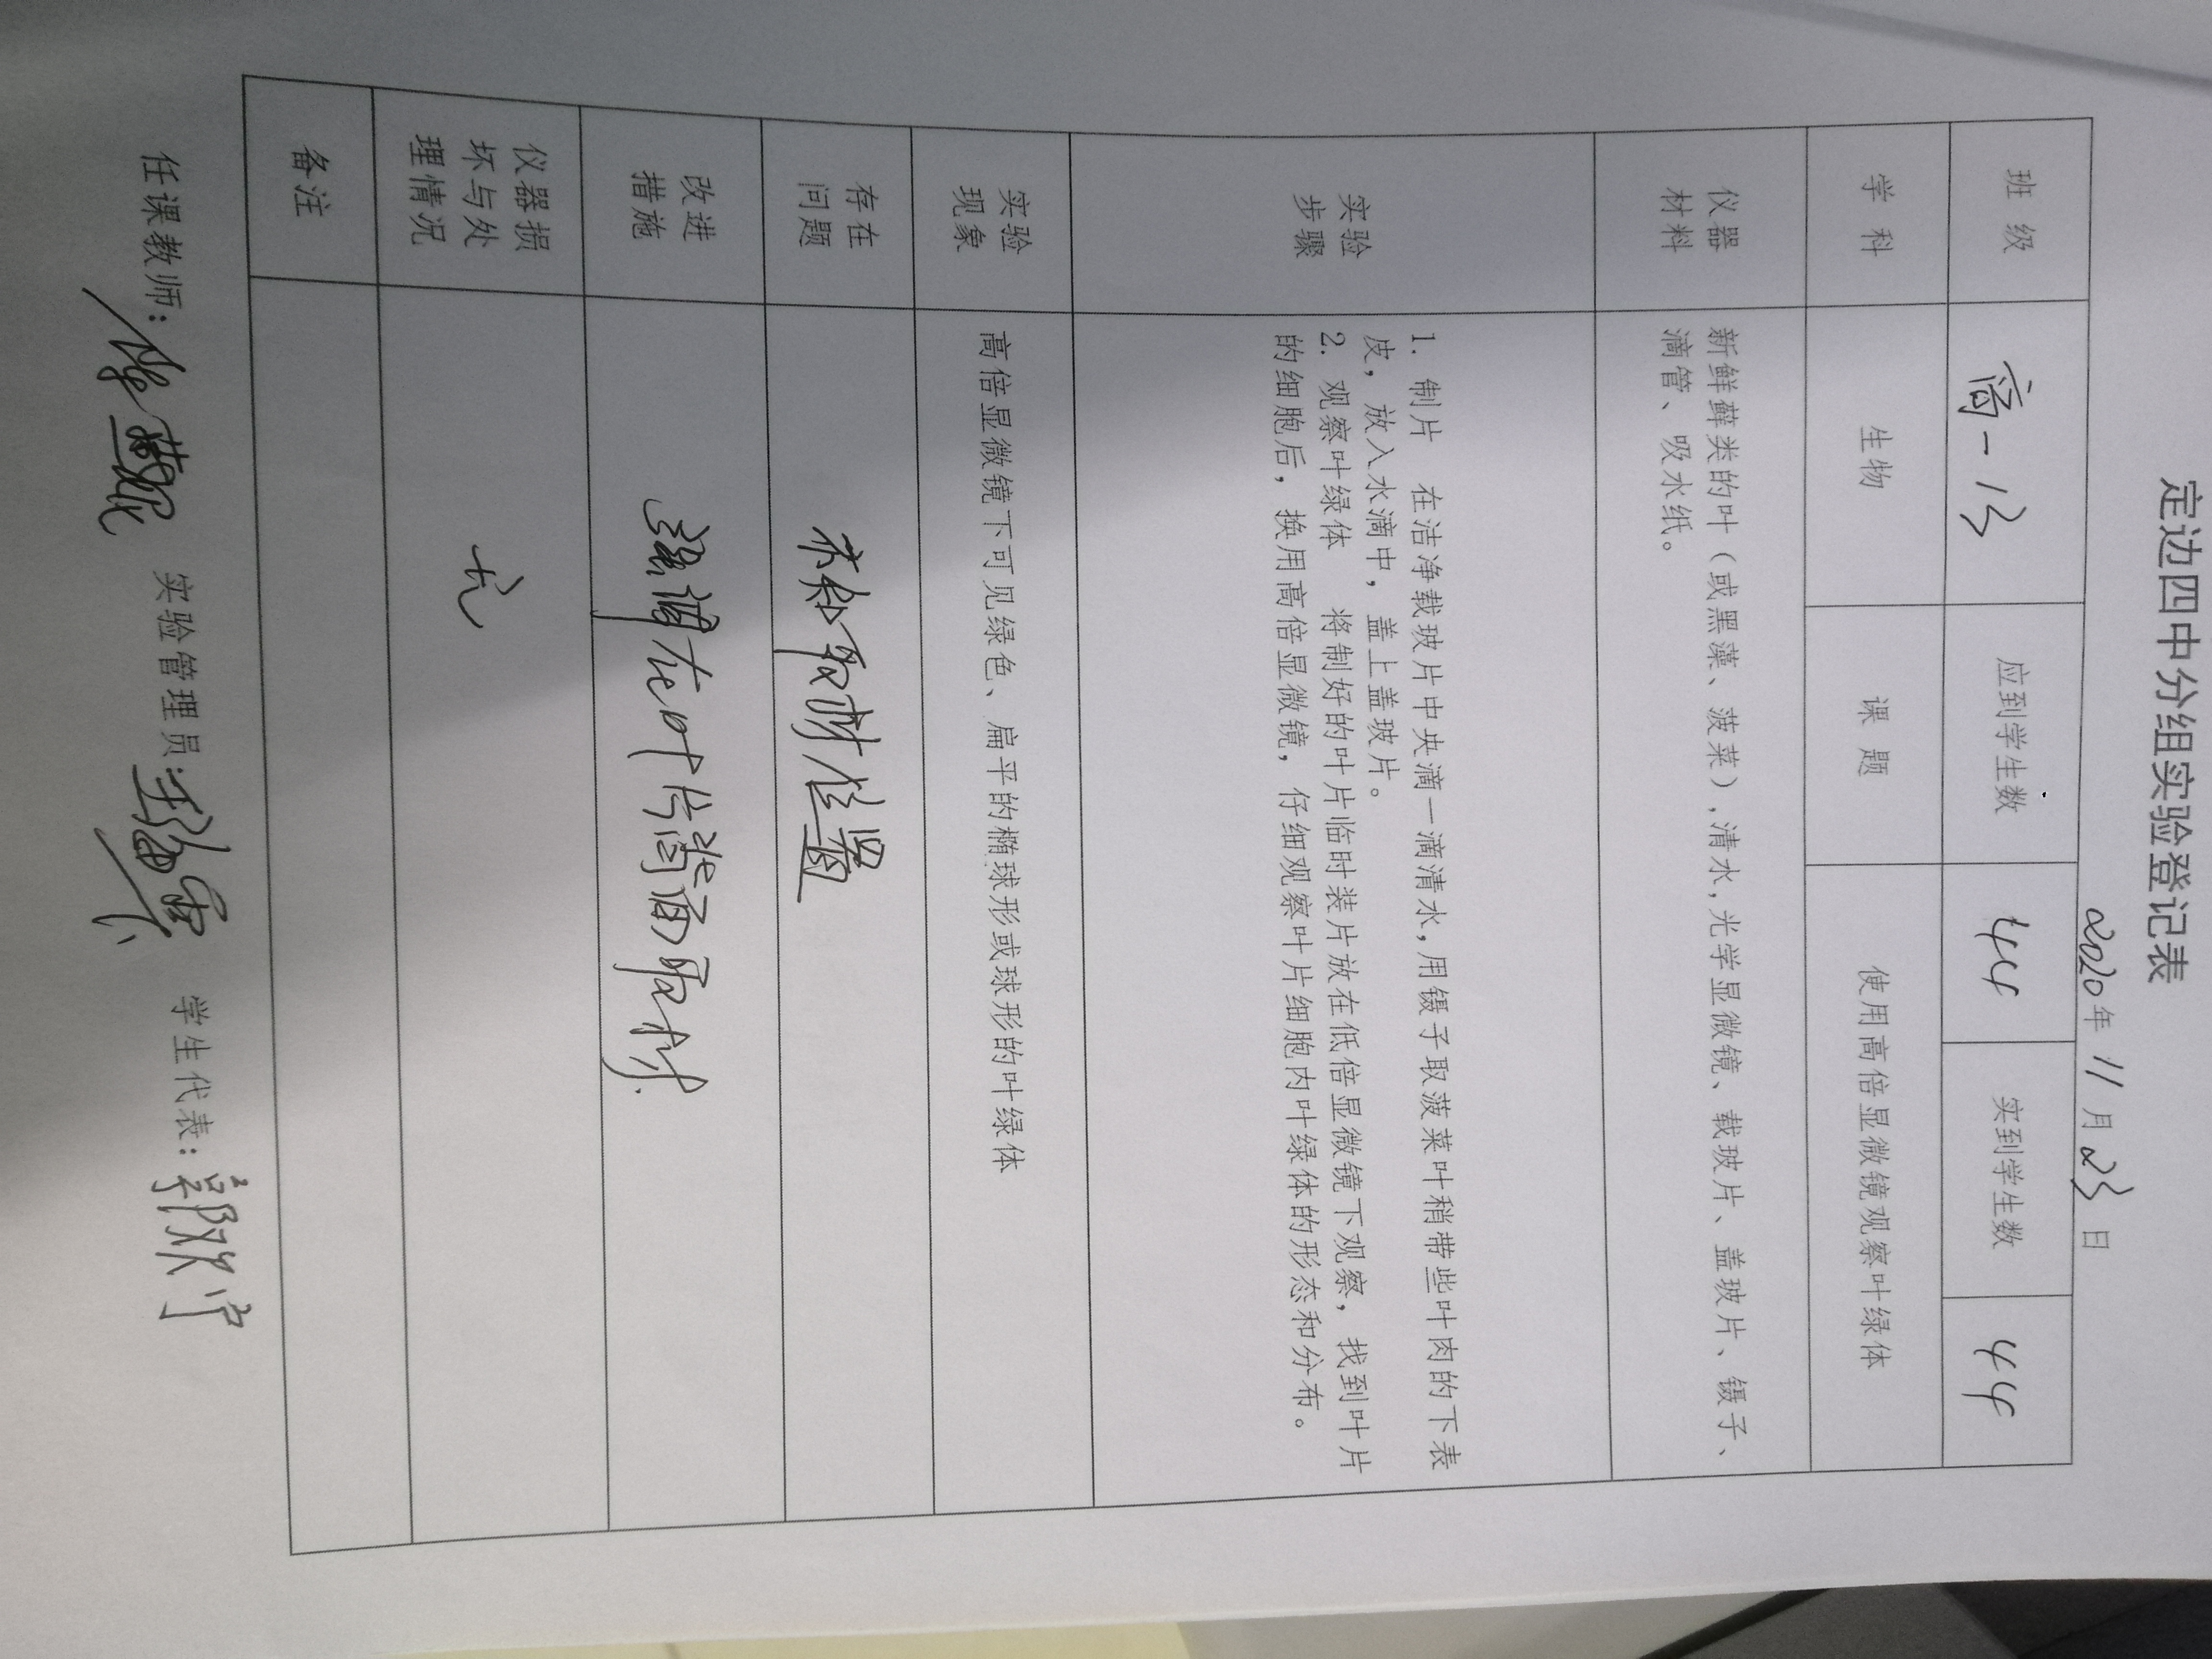 定边四中分组实验登记表
2020年 11月 23日
班 级 高一13 应到学生数 44 实到学生数 44
学 科 生物 课 题 使用高倍显微镜观察叶绿体
仪器
材料
新鲜藓类的叶（或黑藻、菠菜）,清水,光学显微镜、载玻片、盖玻片、镊子、
滴管、吸水纸。
实验
步骤
1. 制片 在洁净载玻片中央滴一滴清水,用镊子取菠菜叶稍带些叶肉的下表
皮，放入水滴中，盖上盖玻片。
2. 观察叶绿体 将制好的叶片临时装片放在低倍显微镜下观察，找到叶片
的细胞后，换用高倍显微镜，仔细观察叶片细胞内叶绿体的形态和分布。
实验
现象
高倍显微镜下可见绿色、扁平的椭球形或球形的叶绿体
存在
问题
不知取材位置
改进
措施
强调在叶片背面取材.
仪器损
坏与处
理情况
无
备注
任课教师： 实验管理员： 学生代表：